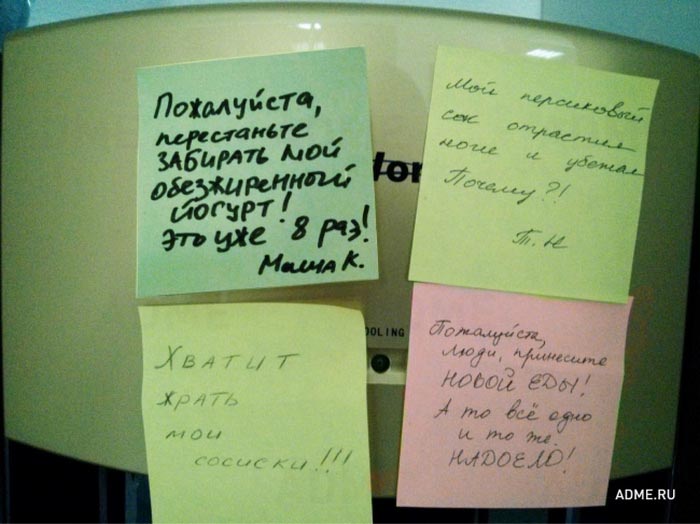 Пожалуйста,
перестаньте
ЗАБИРАТЬ МОЙ
обезжиренный
йогурт!
это уже 8 раз!
Маша К.
Мой персиковый
сок отрастил
ноги и убежал
Почему?!
Т. Н
Хватит
жрать
мои
сосиски!!!
OOLING
Пожалуйста,
люди, принесите
НОВОЙ ЕДЫ!
А то всё одно
и то же.
НАДОЕЛО!
ADME.RU